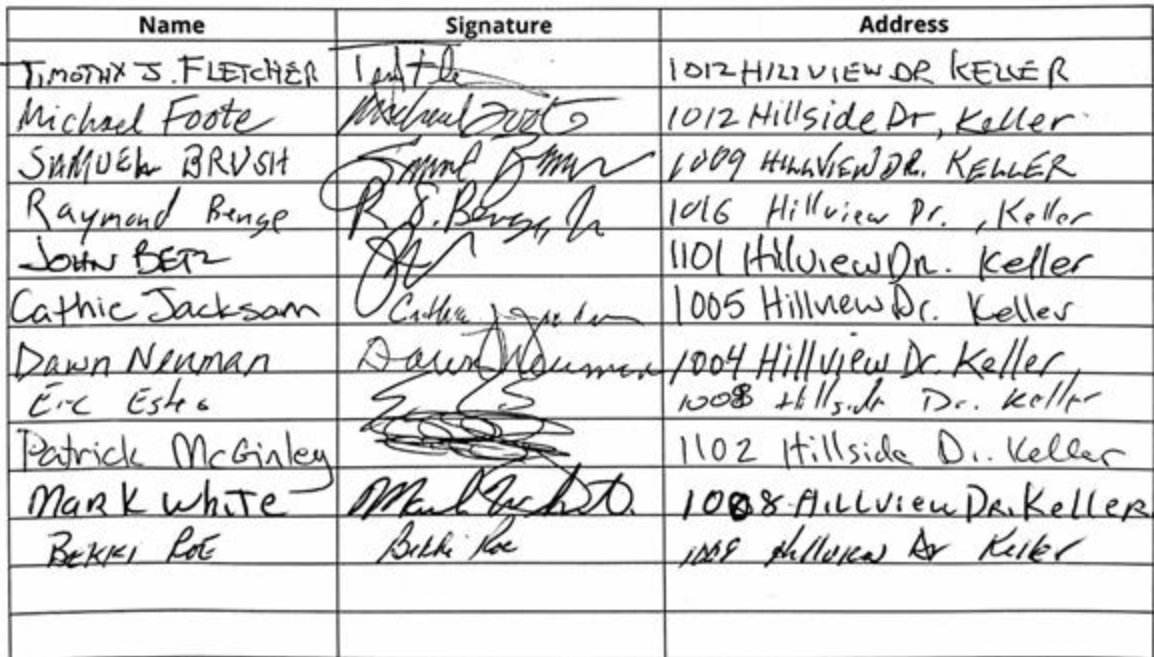 Name Signature Address
TIMOTHY J. FLETCHER 1012 HILLVIEW DR KELLER
Michael Foote Michael Foote 1012 Hillside Dr, Keller
SAMUEL BRUSH 1009 HILLVIEW DR. KELLER
Raymond Benge R. S. Benge, Jr 1016 Hillview Dr. , Keller
JOHN BETZ 1101 Hillview Dr. Keller
Cathie Jackson Cathie Jackson 1005 Hillview Dr. Keller
Dawn Nenman Dawn 1004 Hillview Dr. Keller,
Eric Estes 1008 Hillside Dr. Keller
Patrick McGinley 1102 Hillside Dr. Keller
Mark White Mark White 1008 Hillview Dr. Keller
BEKKI ROE Bekki Roe Hillview Dr Keller